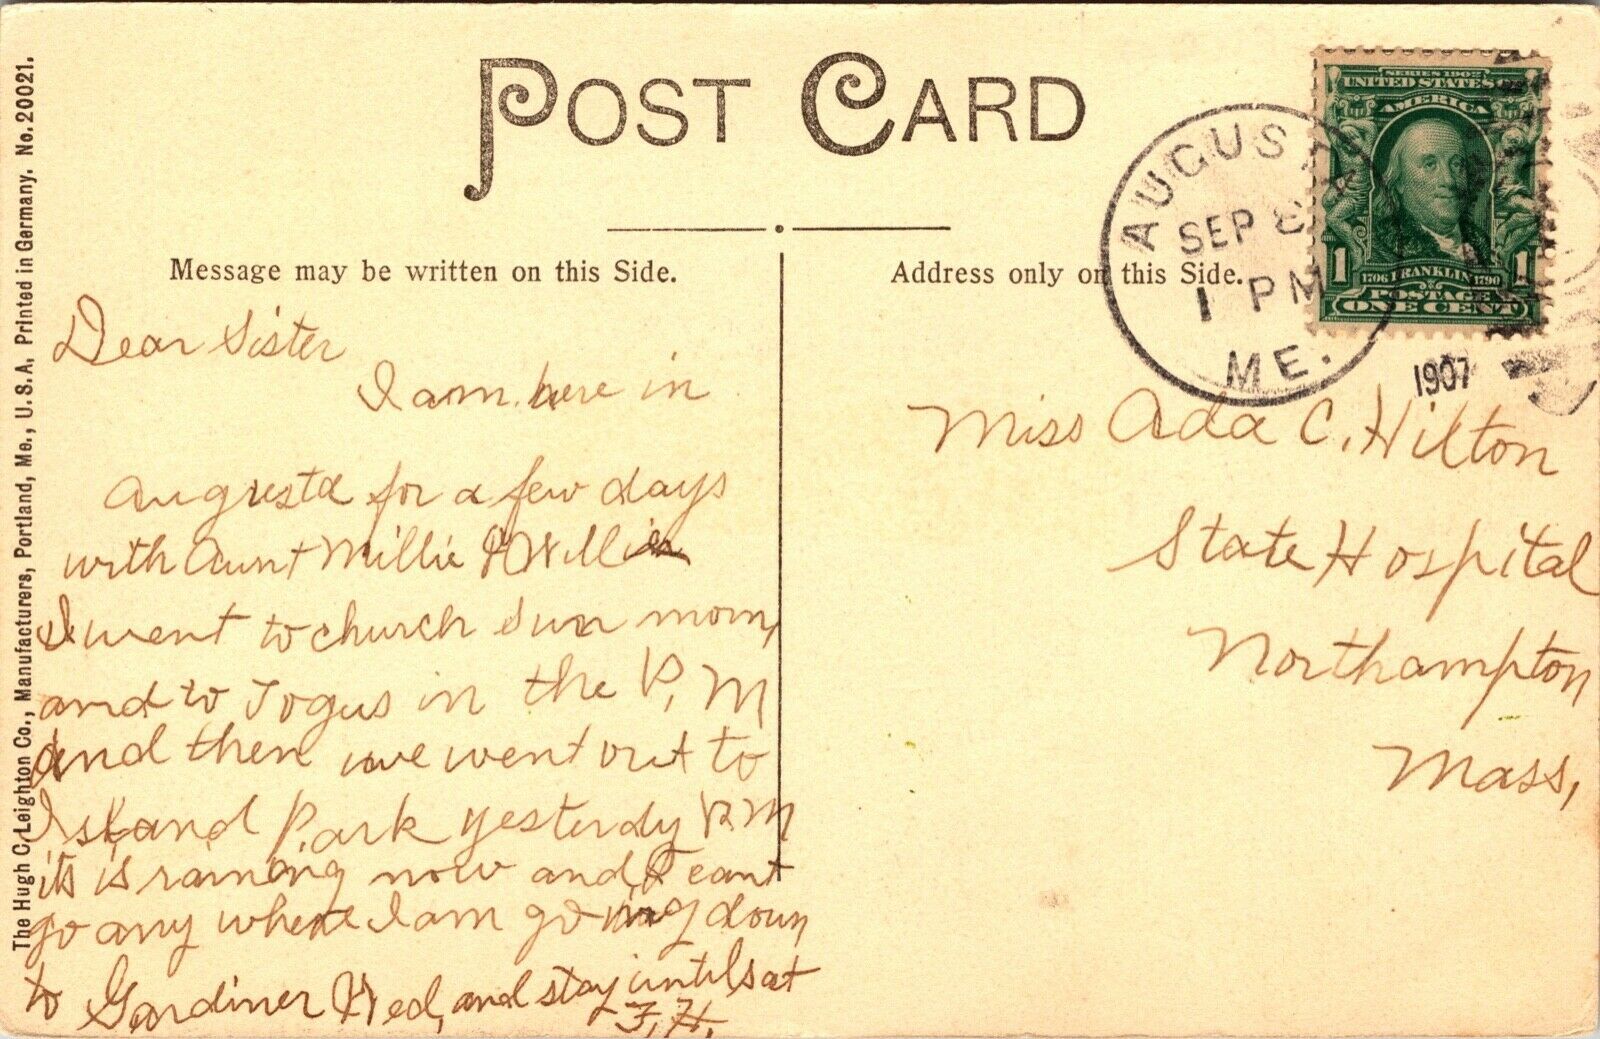 POST CARD
The Hugh C. Leighton Co., Manufacturers, Portland, Me., U.S.A. Printed in Germany. No. 20021.
Message may be written on this Side.
Dear Sister
I am here in
Augusta for a few days
with Aunt Millie & Willie
I went to church Sun morn,
and to Togus in the P, M
and then we went out to
Island Park yesterdy P.M
its is raining now and I cant
go any where I am going down
to Gardiner Wed, and stay until sat
F, H,
Address only on this Side.
AUGUSTA
SEP 8
1 PM
ME.
1907
SERIES 1902
UNITED STATES
AMERICA
1 1706 FRANKLIN 1790 1
POSTAGE
ONE CENT
Miss Ada C. Hilton
State Hospital
Northampton
Mass,